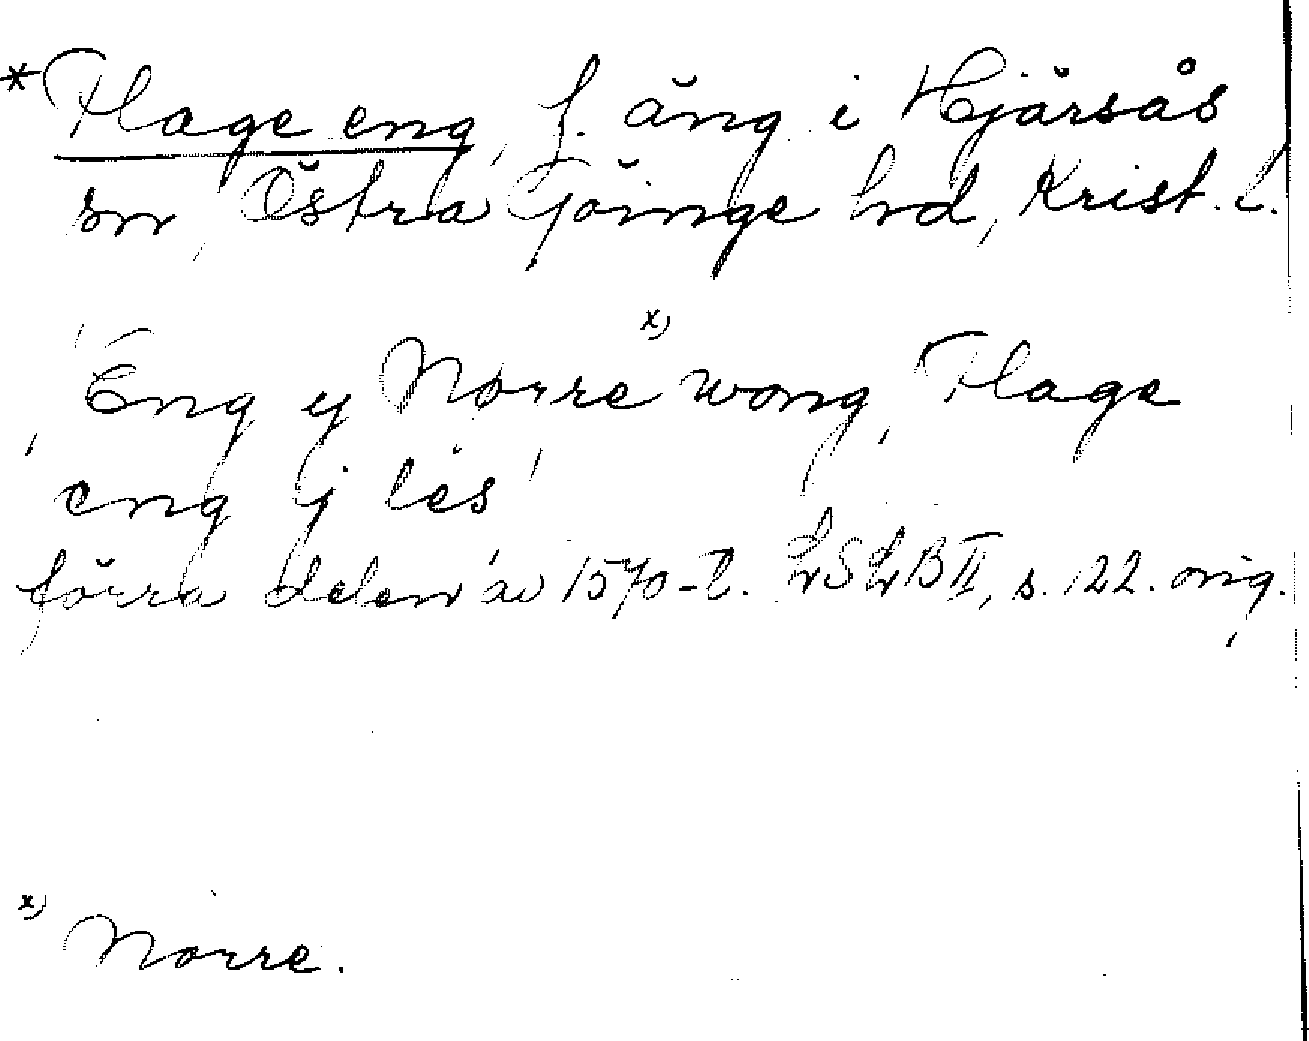 *Flage eng, f. äng i Hjärsås
sn, Östra Göinge hd, Krist. l.
Eng y Norre x) wong, Flage
eng ij lés
förra delen av 1570-t. LSLB II, s. 122. orig.
x) Norre.